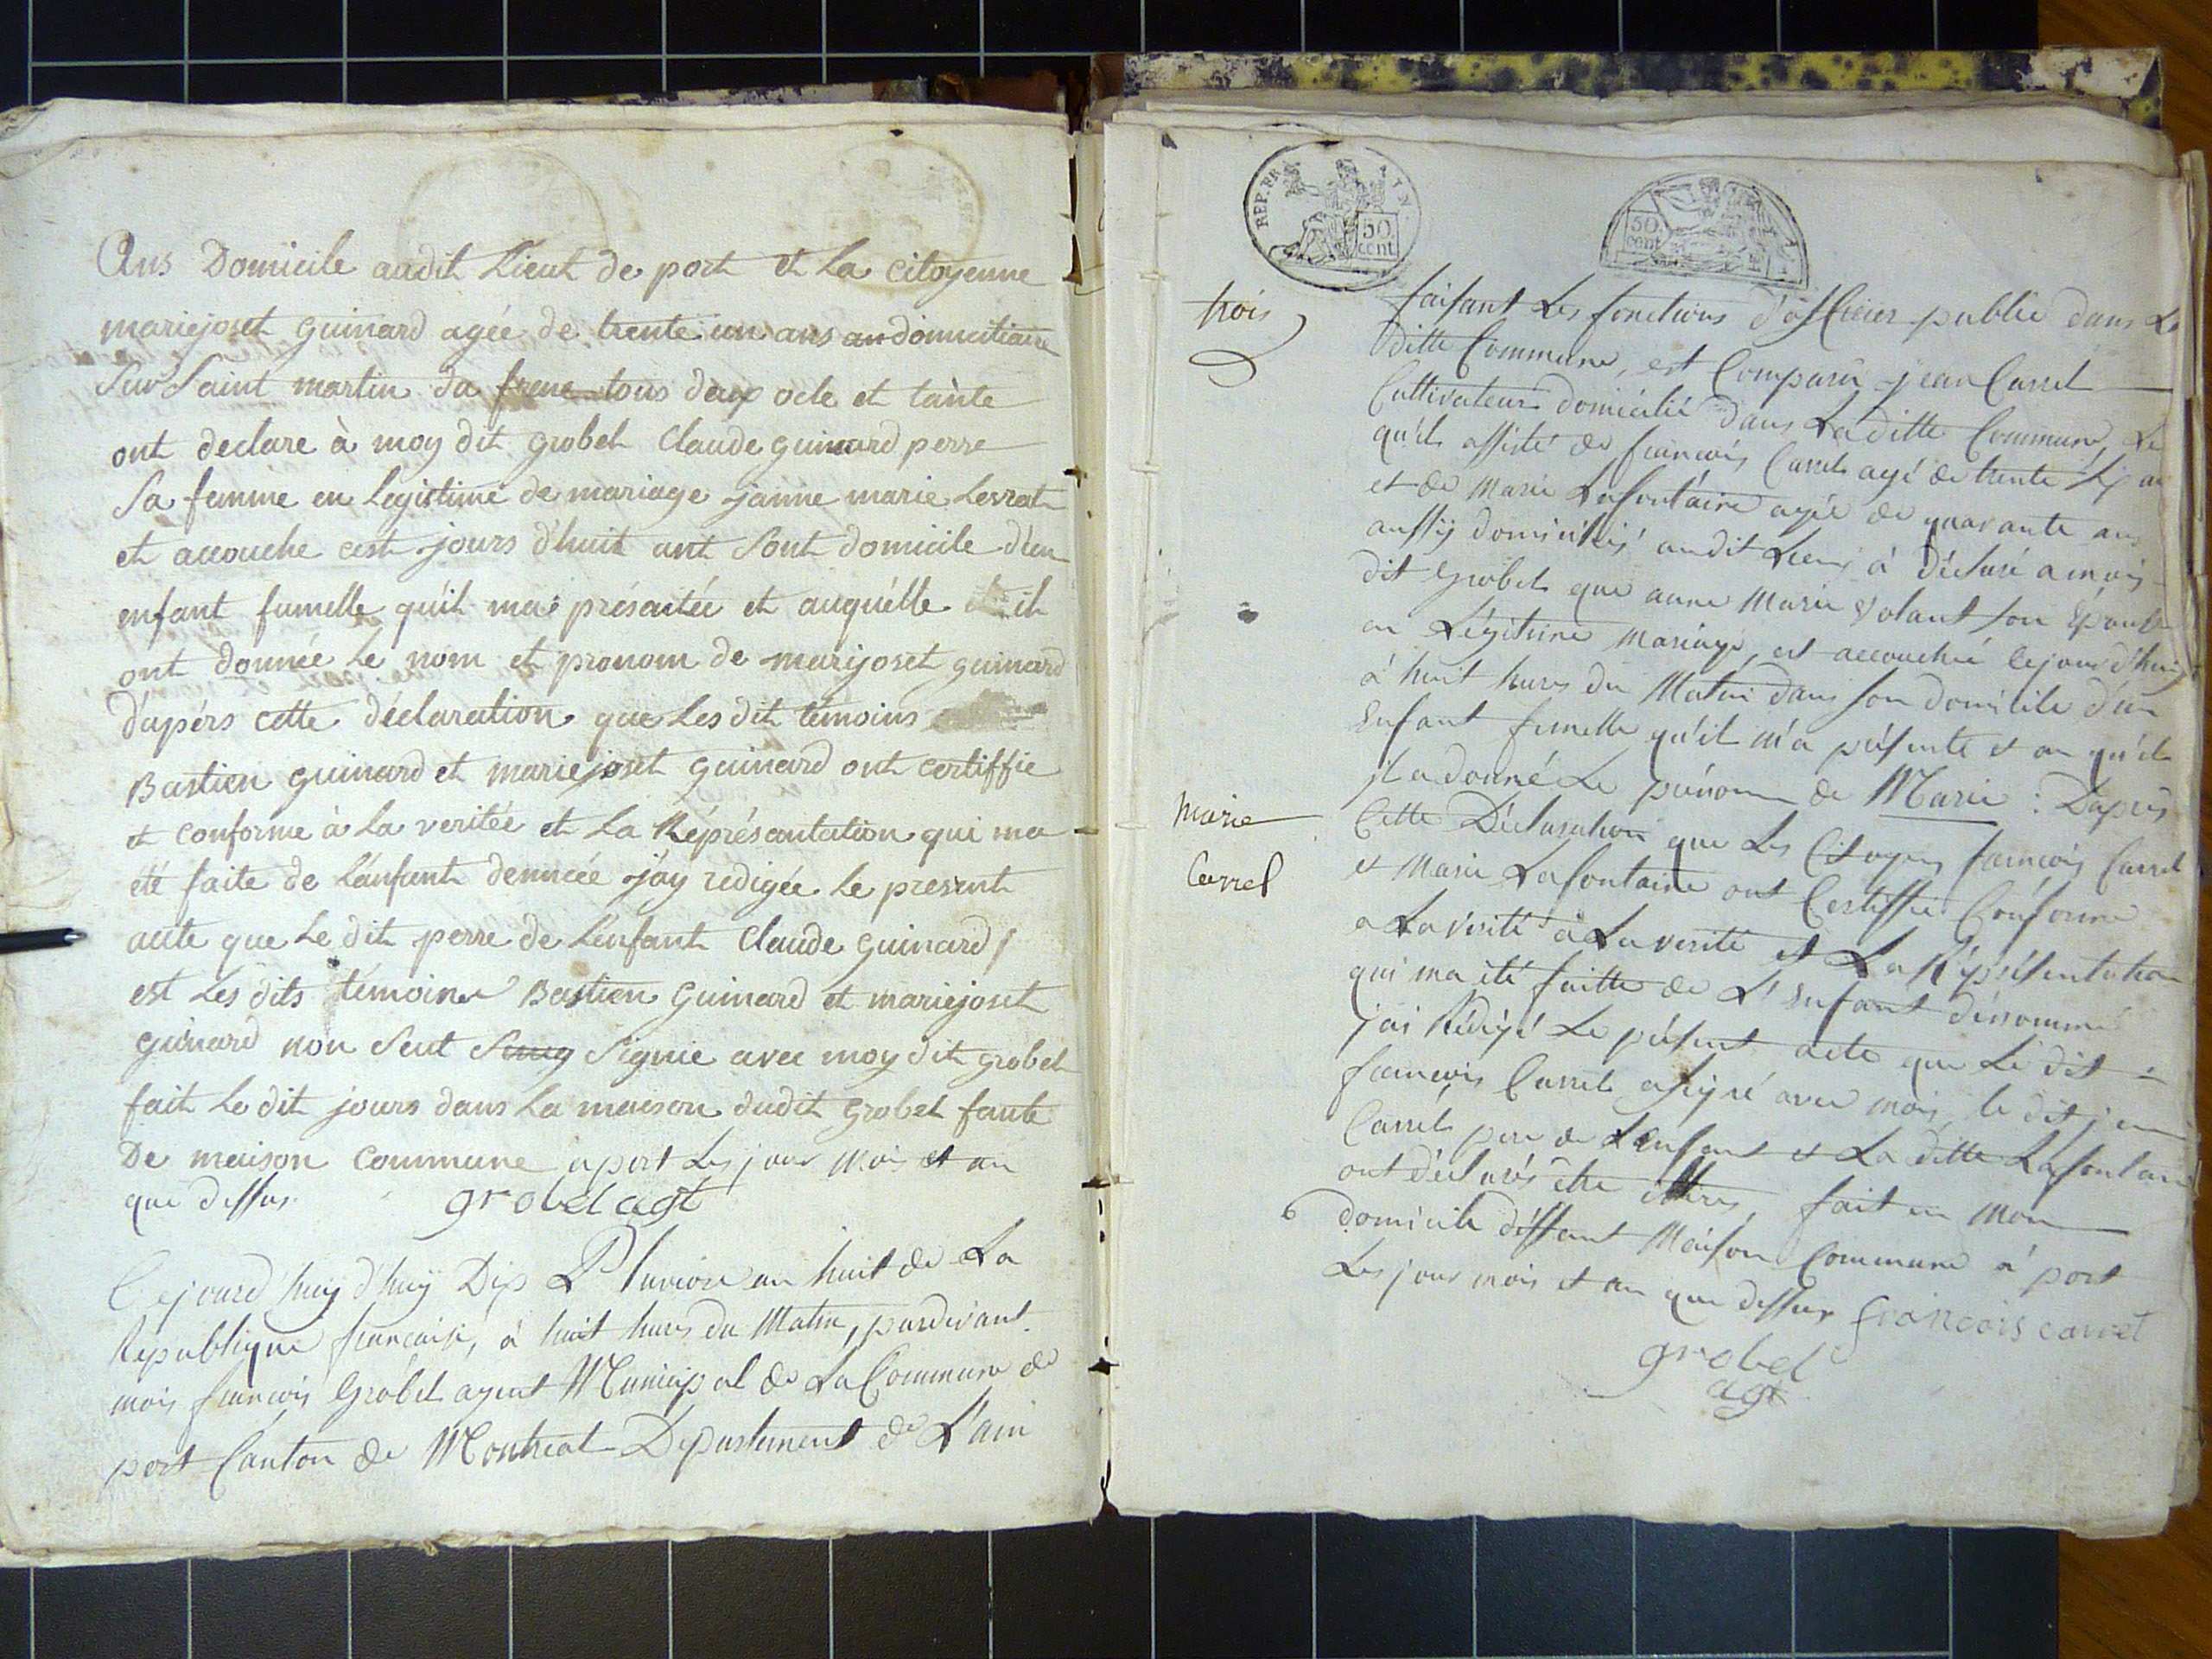 Ans Domicile audit Lieut de port et La citoyenne
mariejoset guinard agée de trente un ans an domicitiaire
Sur Saint martin du frene tous deux ocle et tànte
ont declare à moy dit grobet Claude guinard perre
Sa femme en Legistime de mariage janne marie Levrat
et accouche cest jours d'huit ant Sont domicile d'un
enfant fumelle qu'il ma présantée et auquélle il
ont donnée Le nom et pronom de marijoset guinard
d'apérs cette déclaration que Les dit témoins
Bastien guinard et mariejoset guinard ont certiffie
et conforme à La veritée et La Réprésantation qui ma
été faite de L'anfant denncée j'ay redigée Le present
acte que Le dit perre de L'enfant Claude guinard
est Les dits témoins Bastien Guinard et mariejoset
guinard non Seut Signie avec moy dit grobet
fait Le dit jours dans La maison dudit Grobet faute
De maison commune a port Les jour mois et an
que dessus grobel agt
Cejourd huy d'huy Dix Pluviose an huit de La
République francaise, à huit hures du Matin, pardevant
mois francois Grobel agent Municipal de La Commune de
port Canton de Montreal Département de L'ain
REP. FRA
50 cent
50 cent
trois
faisant Les fonctions d'officier public dans La
ditte Commune, est Comparu jean Carrel
Cultivateur domicilié dans La ditte Commune, Le
qu'el assisté de francois Carrel agé de trente six an
et de Marie Lafontaine agée de quarante ans
aussÿ domiciliés audit Lieu, à déclaré a mois
dit Grobel que anne Marie Volant son Épouse
en Légitime Mariage, est accouchée Cejourd'huy
à huit hures du Matin dans son domicile d'un
Enfant fumelle qu'il m'a présenté et au qu'el
il a donné Le prénom de Marie : Daprès
Marie
Carrel
Cette Déclaration que Les Citoyens francois Carrel
et Marie Lafontaine ont Certiffié Conforme
a La vérité à La verité et La Réprésentation
qui ma été faitte de L'Enfant dénommé
j'ai Rédigé Le présent acte que Le dit
francois Carrel a signé avec mois, le dit jean
Carrel pere de L'enfant et La ditte Lafontaine
ont déclarés être illitrés, fait en mon
domicile déffaut Maison Commune à port
Les jour mois et an que dessus francois carrel
grobel
agt